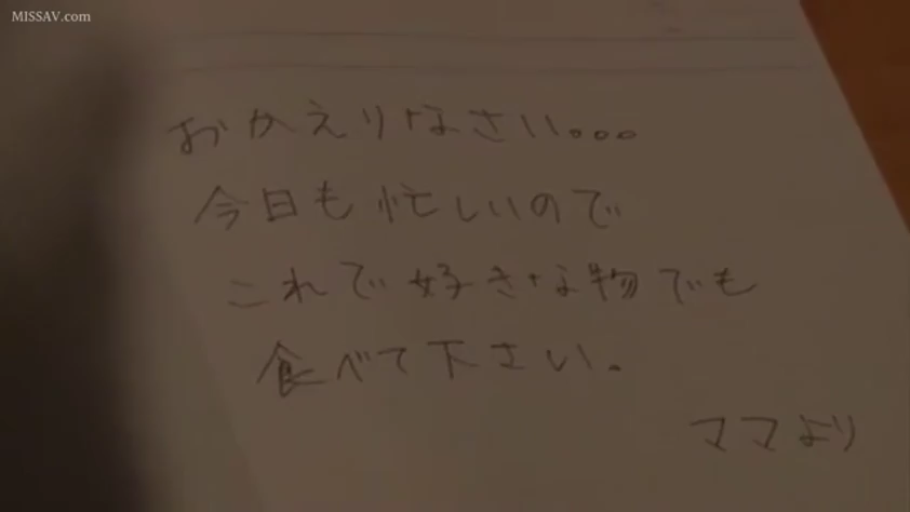 MISSAV.com
おかえりなさい。。。
今日も忙しいので
これで好きな物でも
食べて下さい。
ママより